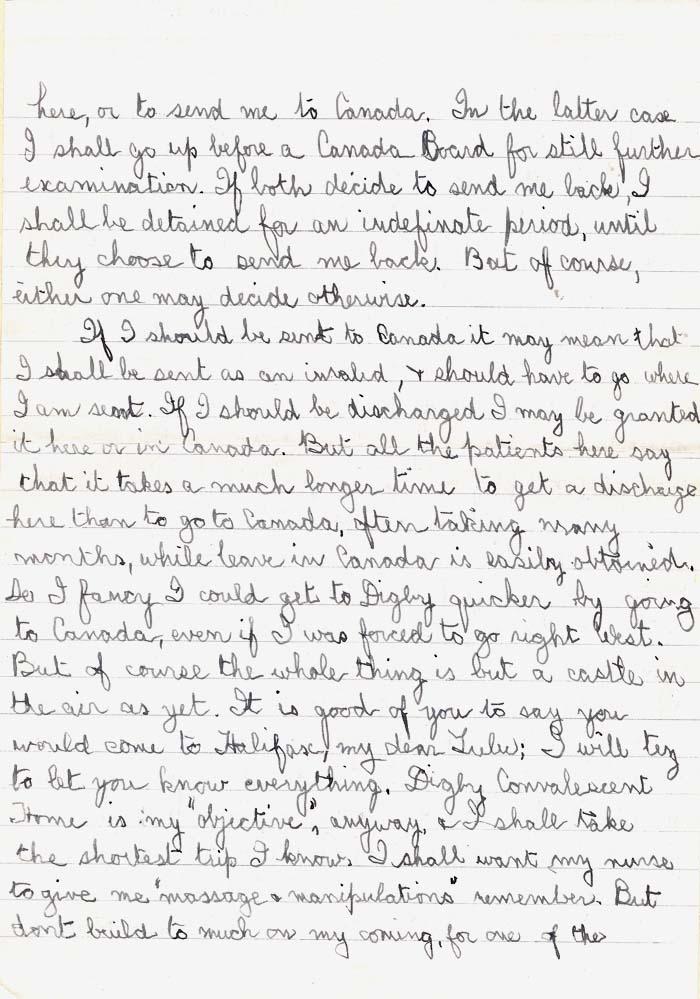 here, or to send me to Canada. In the latter case
I shall go up before a Canada Board for still further
examination. If both decide to send me back, I
shall be detained for an indefinate period, until
they choose to send me back. But of course,
either one may decide otherwise.
If I should be sent to Canada it may mean that
I shall be sent as an invalid, & should have to go where
I am sent. If I should be discharged I may be granted
it here or in Canada. But all the patients here say
that it takes a much longer time to get a discharge
here than to go to Canada, often taking many
months, while leave in Canada is easily obtained.
So I fancy I could get to Digby quicker by going
to Canada, even if I was forced to go right West.
But of course the whole thing is but a castle in
the air as yet. It is good of you to say you
would come to Halifax, my dear Lulu; I will try
to let you know everything. Digby Convalescent
Home is my "objective", anyway, & I shall take
the shortest trip I know. I shall want my nurse
to give me "massage & manipulations" remember. But
dont build to much on my coming, for one of the